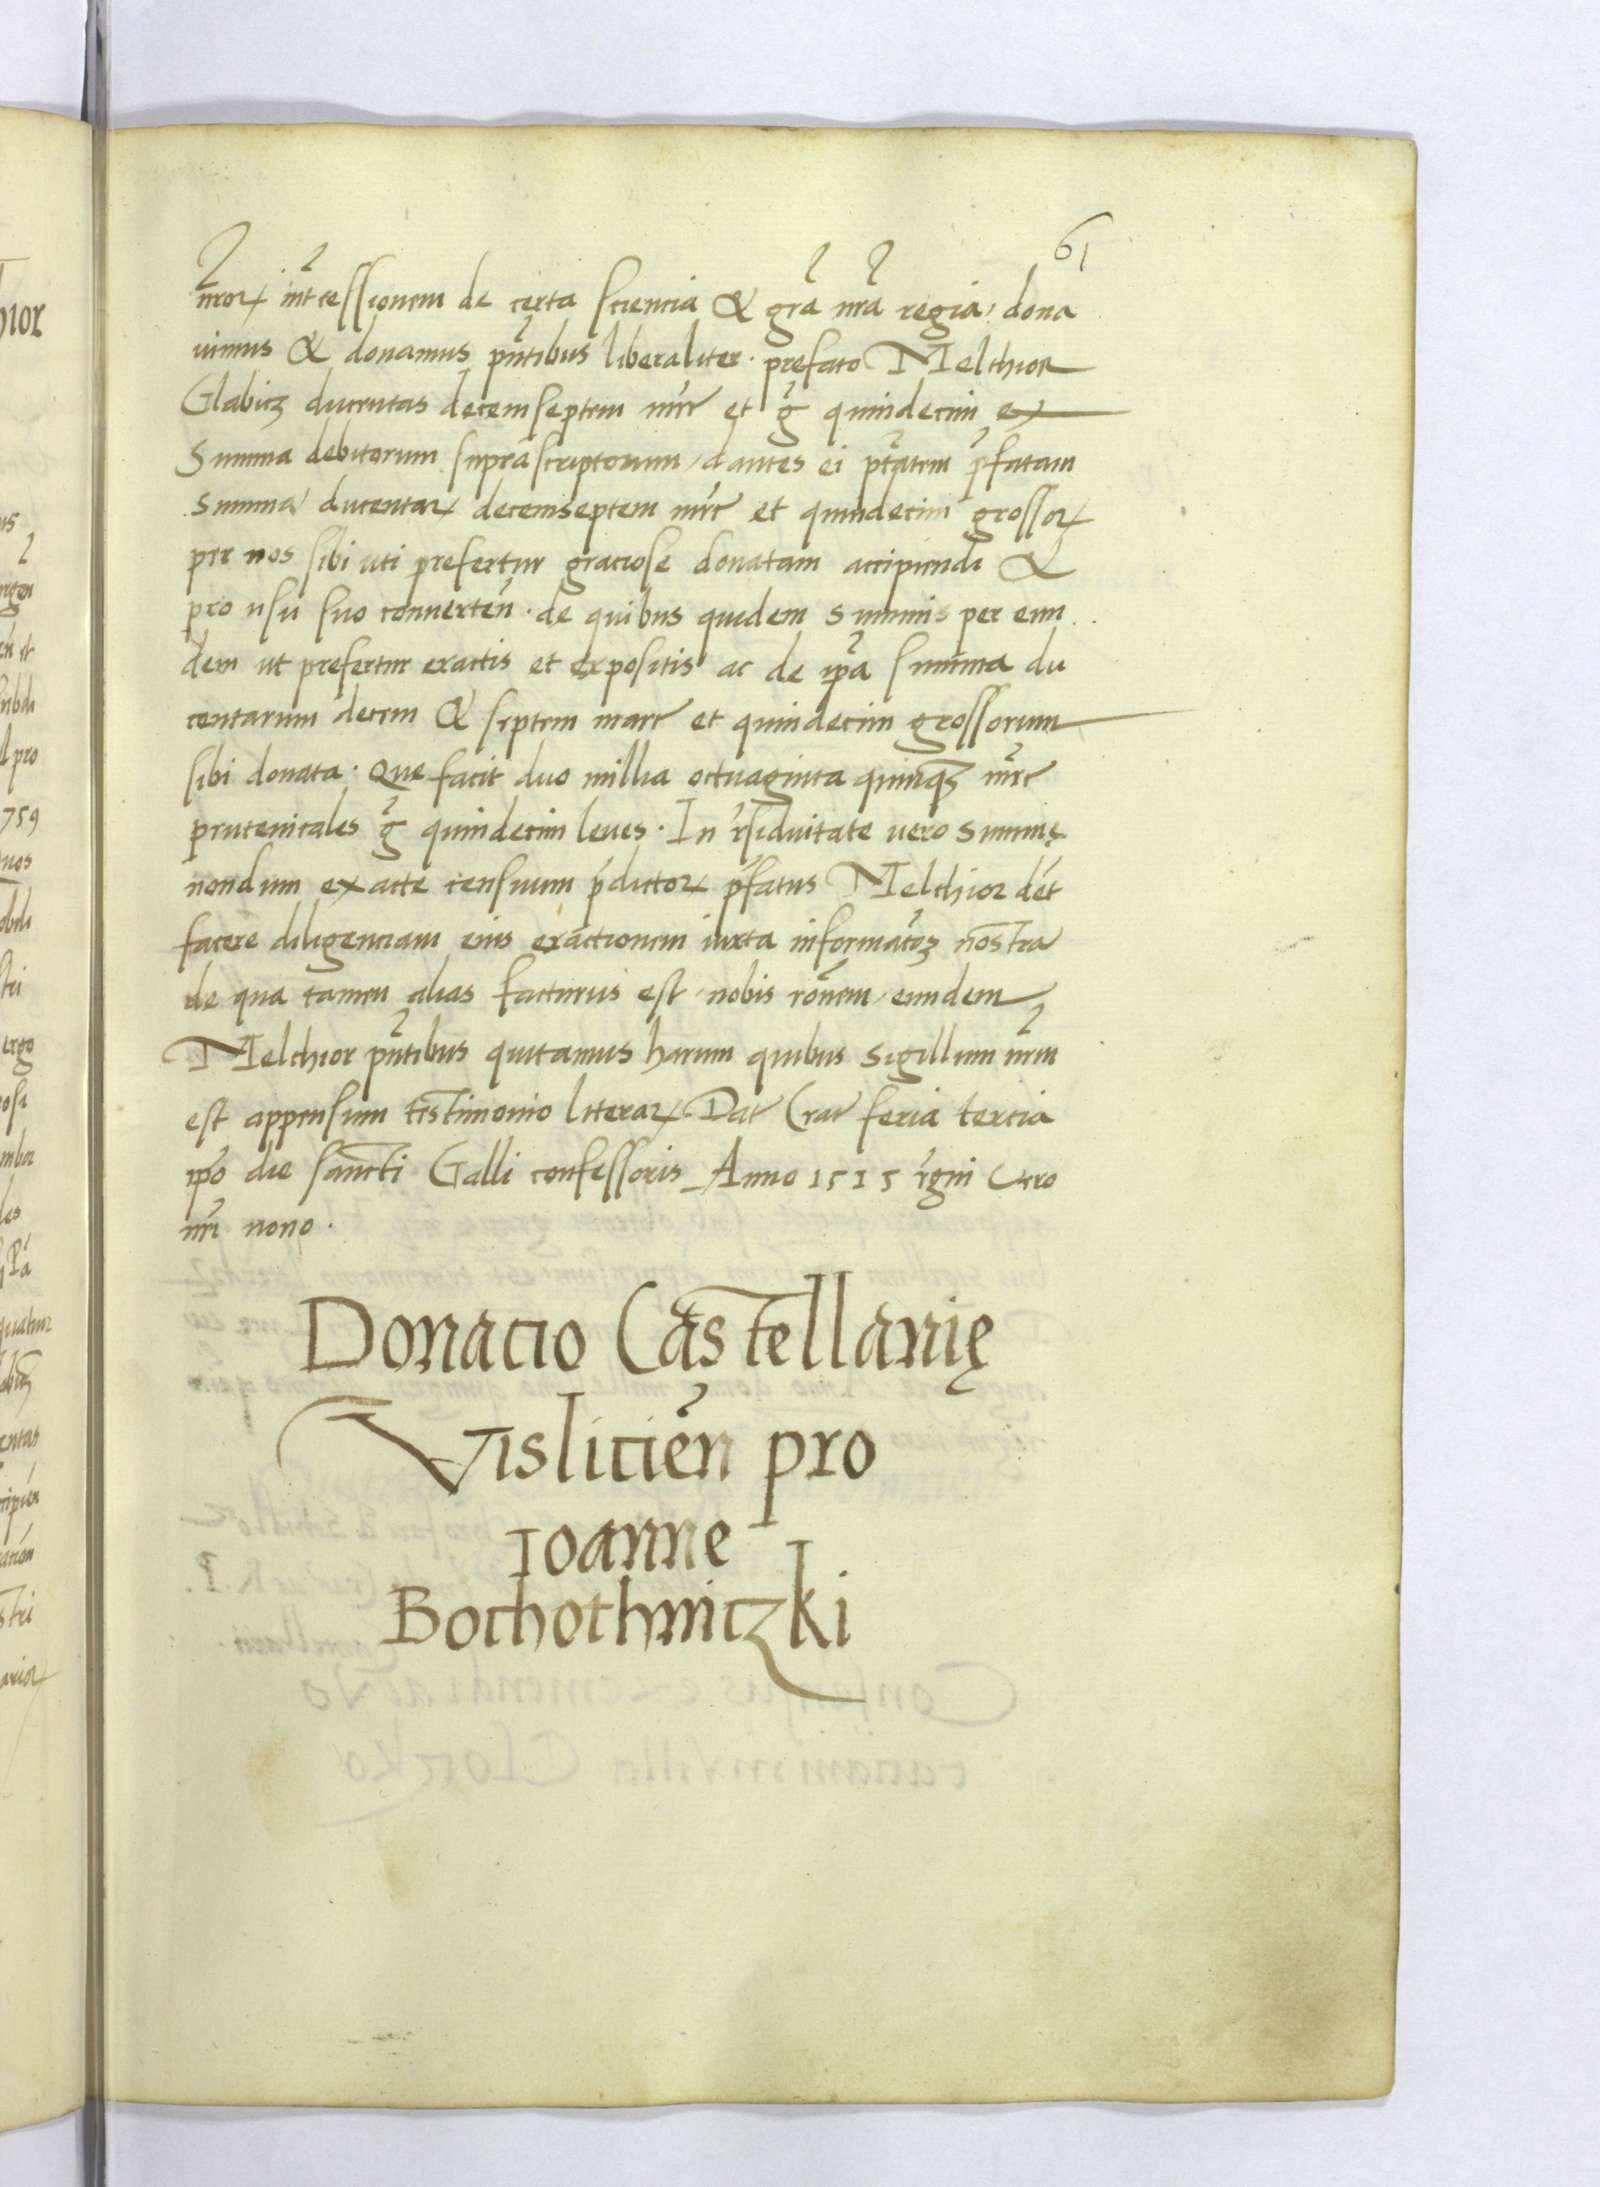 61
nror intcessionem de certa sciencia & gra nra regia, dona
uimus & donamus pntibus liberaliter. prefato Melchior
Glabicz ducentas decemseptem mrc et g quindecim ex
Summa debitorum suprascriptorum, dantes ei ptatem pfatam
summa ducentar decemseptem mrc et quindecim grossor
per nos sibi uti prefertur graciose donatam accipiendi &
pro usu suo conuerten. de quibus quidem summis per eun
dem ut prefertur exactis et expositis ac de ipa summa du
centarum decem & septem marc et quindecim grossorum
sibi donata. Que facit duo millia octuaginta quinq3 mrc
prutenicales g quindecim leues. In rsiduitate vero summę
nondum exacte censuum pdictor pfatus Melchior det
facere diligenciam eius exactionem iuxta informacoz nostra
de qua tamen alias facturus est nobis ronem, eundem
Melchior pntibus quitamus harum quibus sigillum nrm
est appensum testimonio literar. Dat Crac feria tercia
ipo die sancti Galli confessoris Anno 1515 rgni vero
nri nono.
Donacio Castellanię
Vislicien pro
Ioanne
Bochothniczki